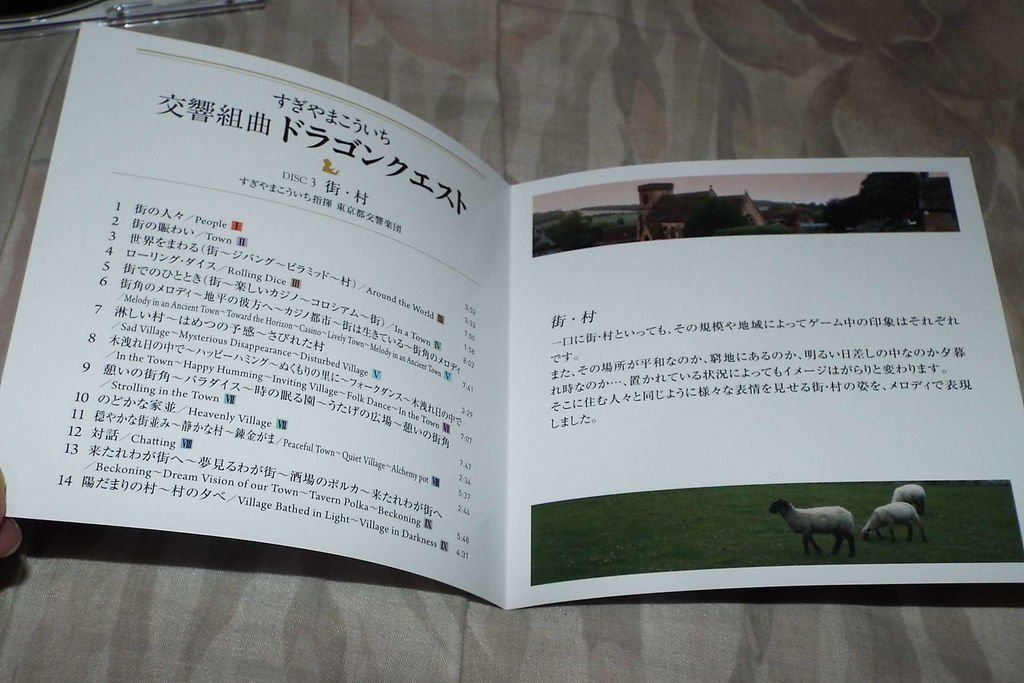 すぎやまこういち
交響組曲 ドラゴンクエスト
DISC 3 街・村
すぎやまこういち指揮 東京都交響楽団
1 街の人々/People I 3:52
2 街の賑わい/Town II 3:33
3 世界をまわる(街〜ジパング〜ピラミッド〜村)/Around the World III 7:00
4 ローリング・ダイス/Rolling Dice III 1:58
5 街でのひととき(街〜楽しいカジノ〜コロシアム〜街)/In a Town IV 8:02
6 街角のメロディ〜地平の彼方へ〜カジノ都市〜街は生きている〜街角のメロディ
/Melody in an Ancient Town〜Toward the Horizon〜Casino〜Lively Town〜Melody in an Ancient Town V 7:41
7 淋しい村〜はめつの予感〜さびれた村
/Sad Village〜Mysterious Disappearance〜Disturbed Village V 3:29
8 木洩れ日の中で〜ハッピーハミング〜ぬくもりの里に〜フォークダンス〜木洩れ日の中で
/In the Town〜Happy Humming〜Inviting Village〜Folk Dance〜In the Town VI 7:07
9 憩いの街角〜パラダイス〜時の眠る園〜うたげの広場〜憩いの街角
/Strolling in the Town VII 7:47
10 のどかな家並/Heavenly Village VII 2:34
11 穏やかな街並み〜静かな村〜錬金がま/Peaceful Town〜Quiet Village〜Alchemy pot VIII 5:37
12 対話/Chatting VIII 2:44
13 来たれわが街へ〜夢見るわが街〜酒場のポルカ〜来たれわが街へ
/Beckoning〜Dream Vision of our Town〜Tavern Polka〜Beckoning IX 5:48
14 陽だまりの村〜村の夕べ/Village Bathed in Light〜Village in Darkness IX 4:31
街・村
一口に街・村といっても、その規模や地域によってゲーム中の印象はそれぞれ
です。
また、その場所が平和なのか、窮地にあるのか、明るい日差しの中なのか夕暮
れ時なのか…、置かれている状況によってもイメージはがらりと変わります。
そこに住む人々と同じように様々な表情を見せる街・村の姿を、メロディで表現
しました。